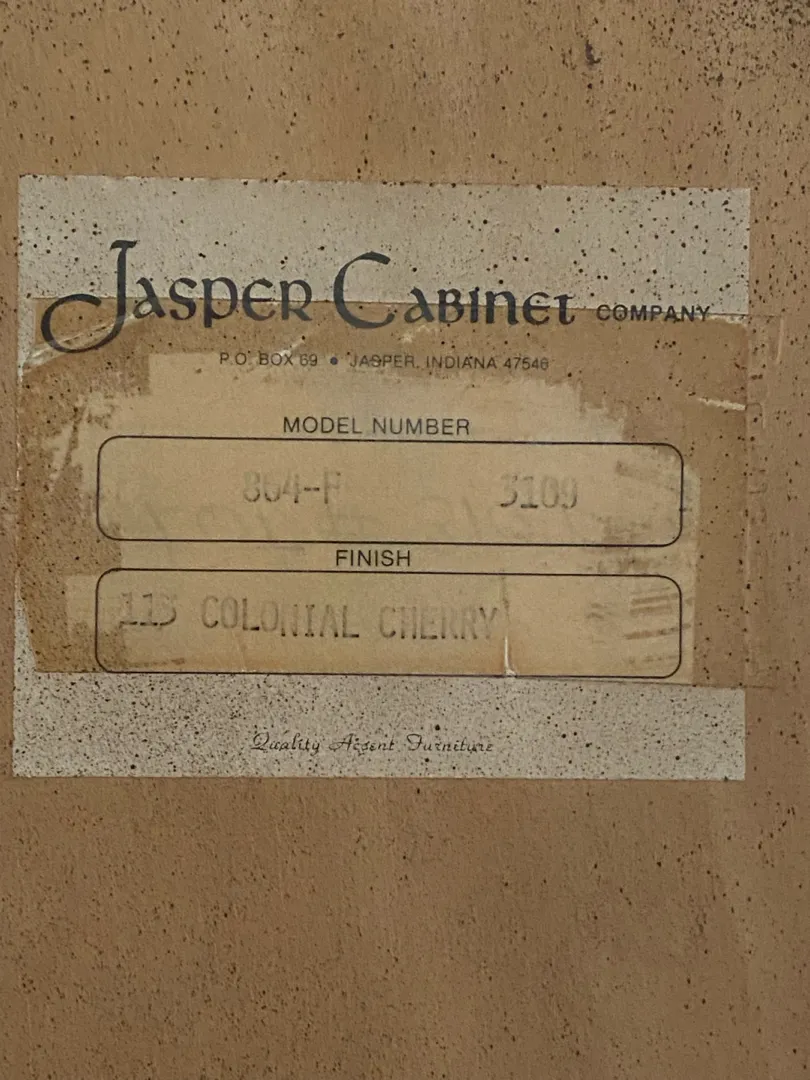 Jasper Cabinet COMPANY
P.O. BOX 69 • JASPER, INDIANA 47546
MODEL NUMBER
864-F 3109
FINISH
113 COLONIAL CHERRY
Quality Accent Furniture